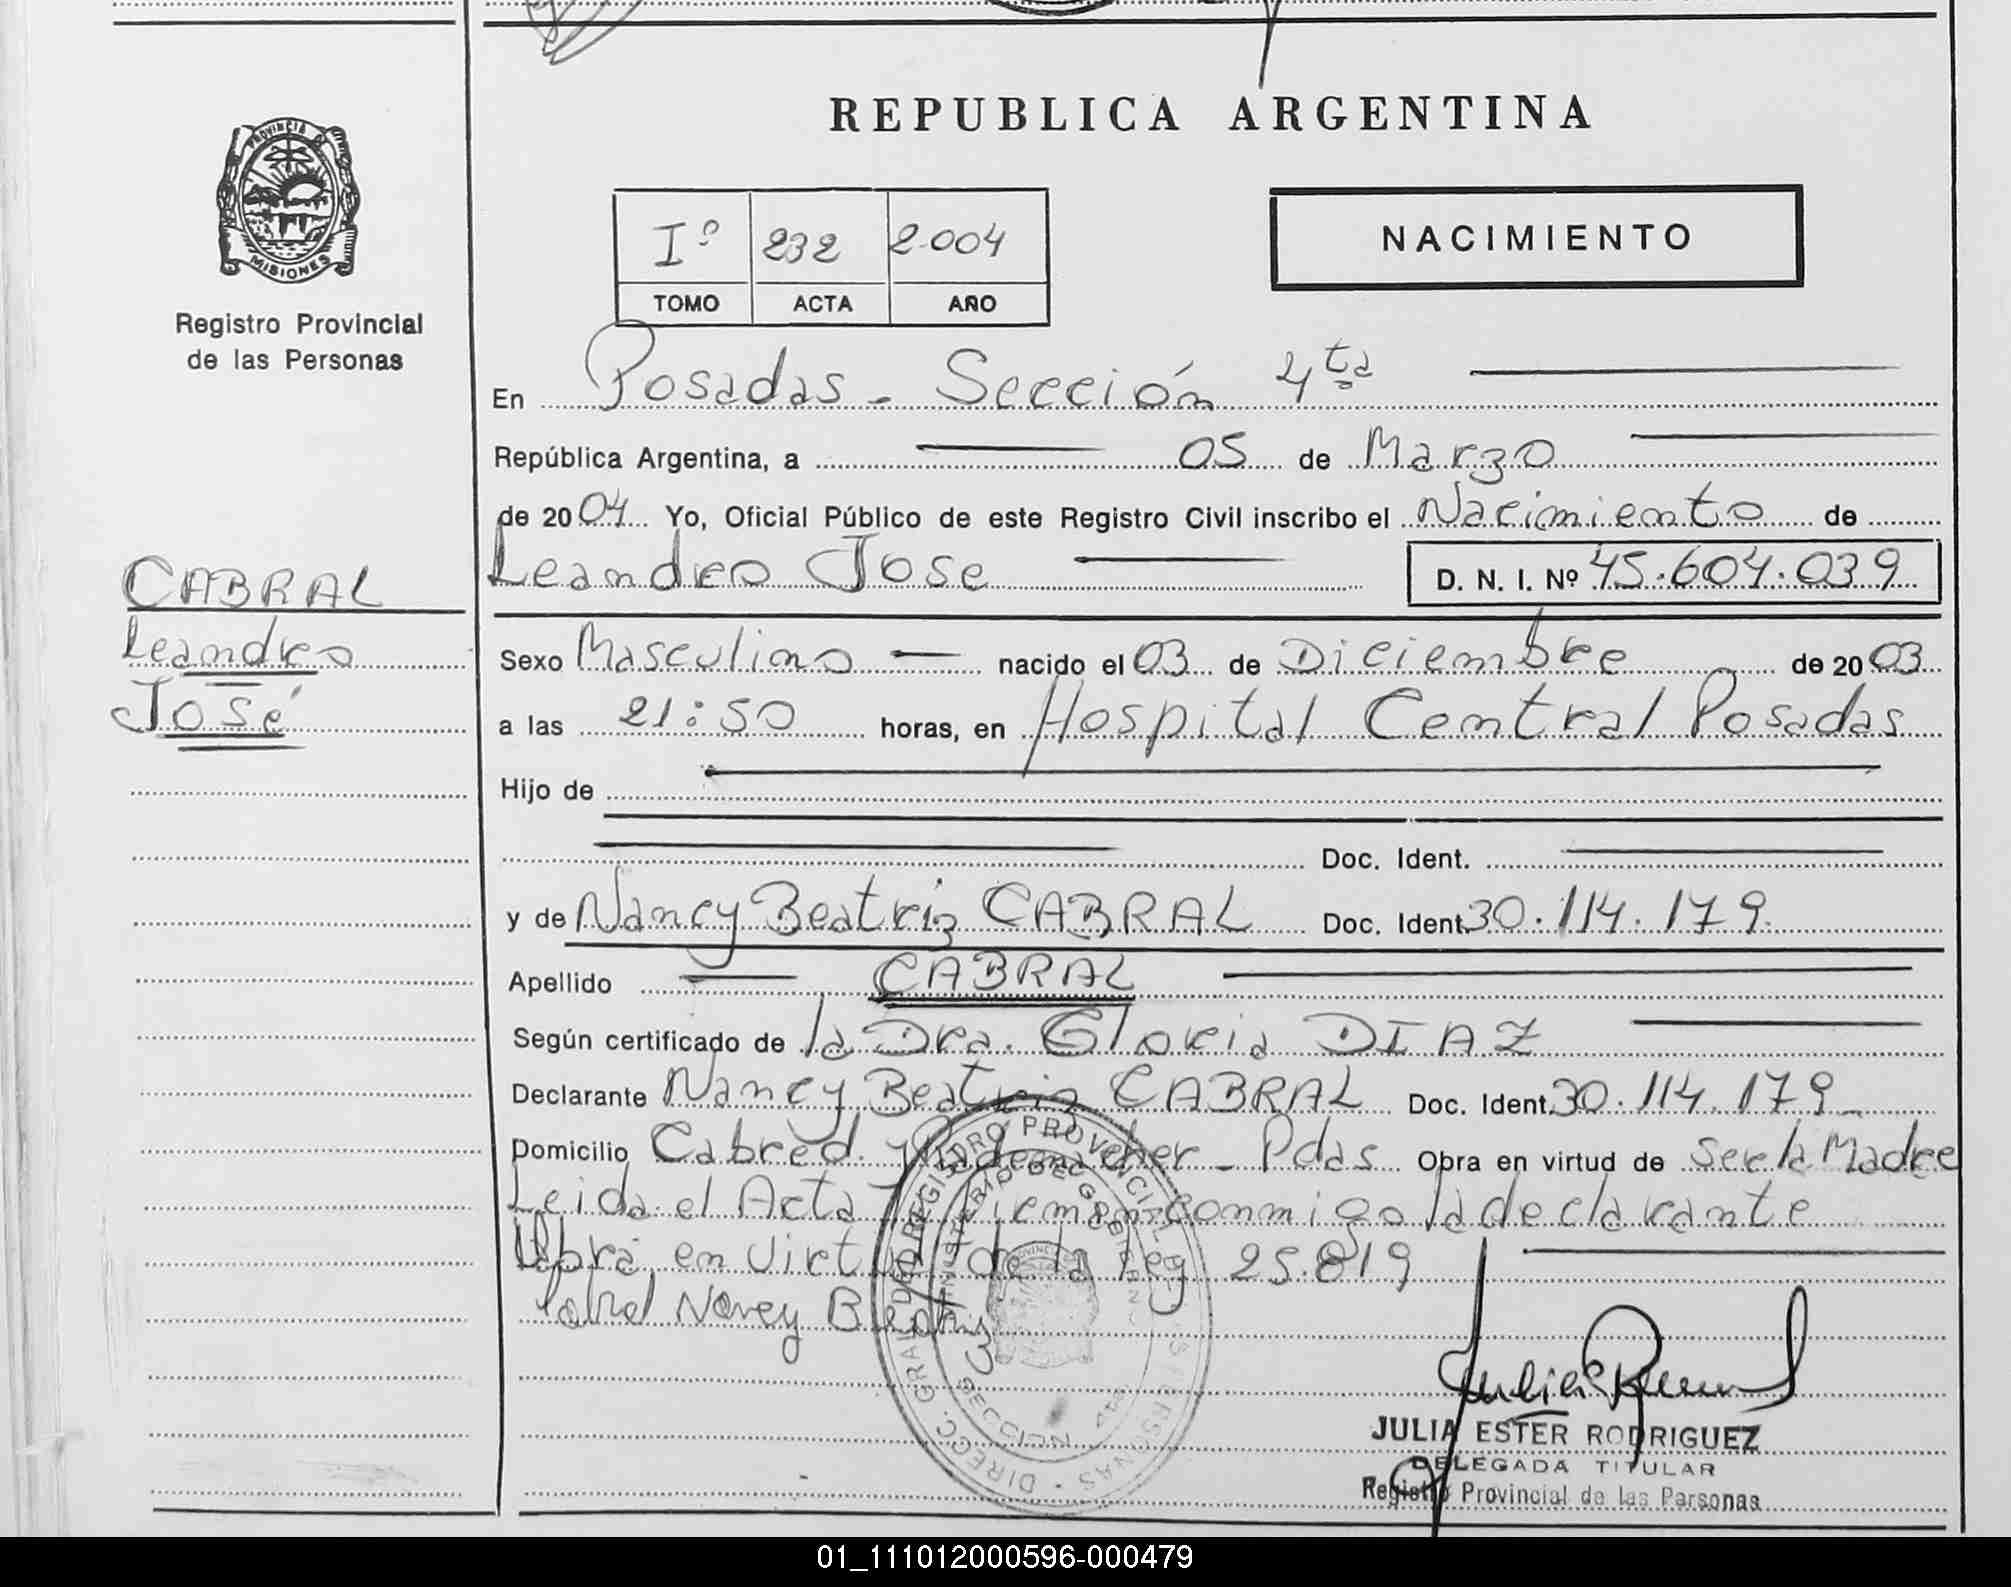 PROVINCIA DE
MISIONES
Registro Provincial
de las Personas
CABRAL
Leandro
José
REPUBLICA ARGENTINA
Iº 232 2.004
TOMO ACTA AÑO
NACIMIENTO
En Posadas - Sección 4ta
República Argentina, a 05 de Marzo
de 2004 Yo, Oficial Público de este Registro Civil inscribo el Nacimiento de
Leandro Jose D. N. I. Nº 45.604.039
Sexo Masculino nacido el 03 de Diciembre de 2003
a las 21:50 horas, en Hospital Central Posadas
Hijo de
Doc. Ident.
y de Nancy Beatriz CABRAL Doc. Ident. 30.114.179.
Apellido CABRAL
Según certificado de la Dra. Gloria DIAZ
Declarante Nancy Beatriz CABRAL Doc. Ident. 30.114.179
Domicilio Cabred y Rademacher - Pdas Obra en virtud de Ser la Madre
Leida el Acta Firman conmigo la declarante
Obra en Virtud de la Ley 25.819
Cabral Nancy Beatriz
JULIA ESTER RODRIGUEZ
DELEGADA TITULAR
Registro Provincial de las Personas
01_111012000596-000479